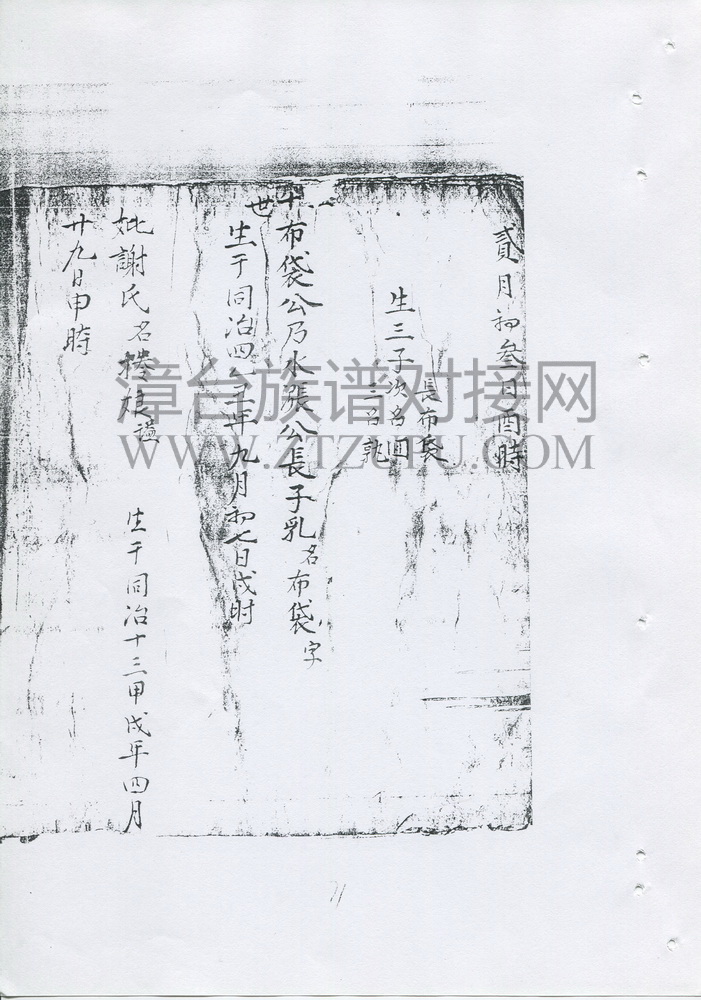 貳月初叁日酉時
長布袋
生三子次名
三名
十 世
布袋公乃水張公長子乳名布袋字
生于同治四年九月初七日戌时
妣謝氏名娘 生于同治十三甲戌年四月
廿九日申時
漳台族谱对接网
WWW.ZTZUPU.COM
71